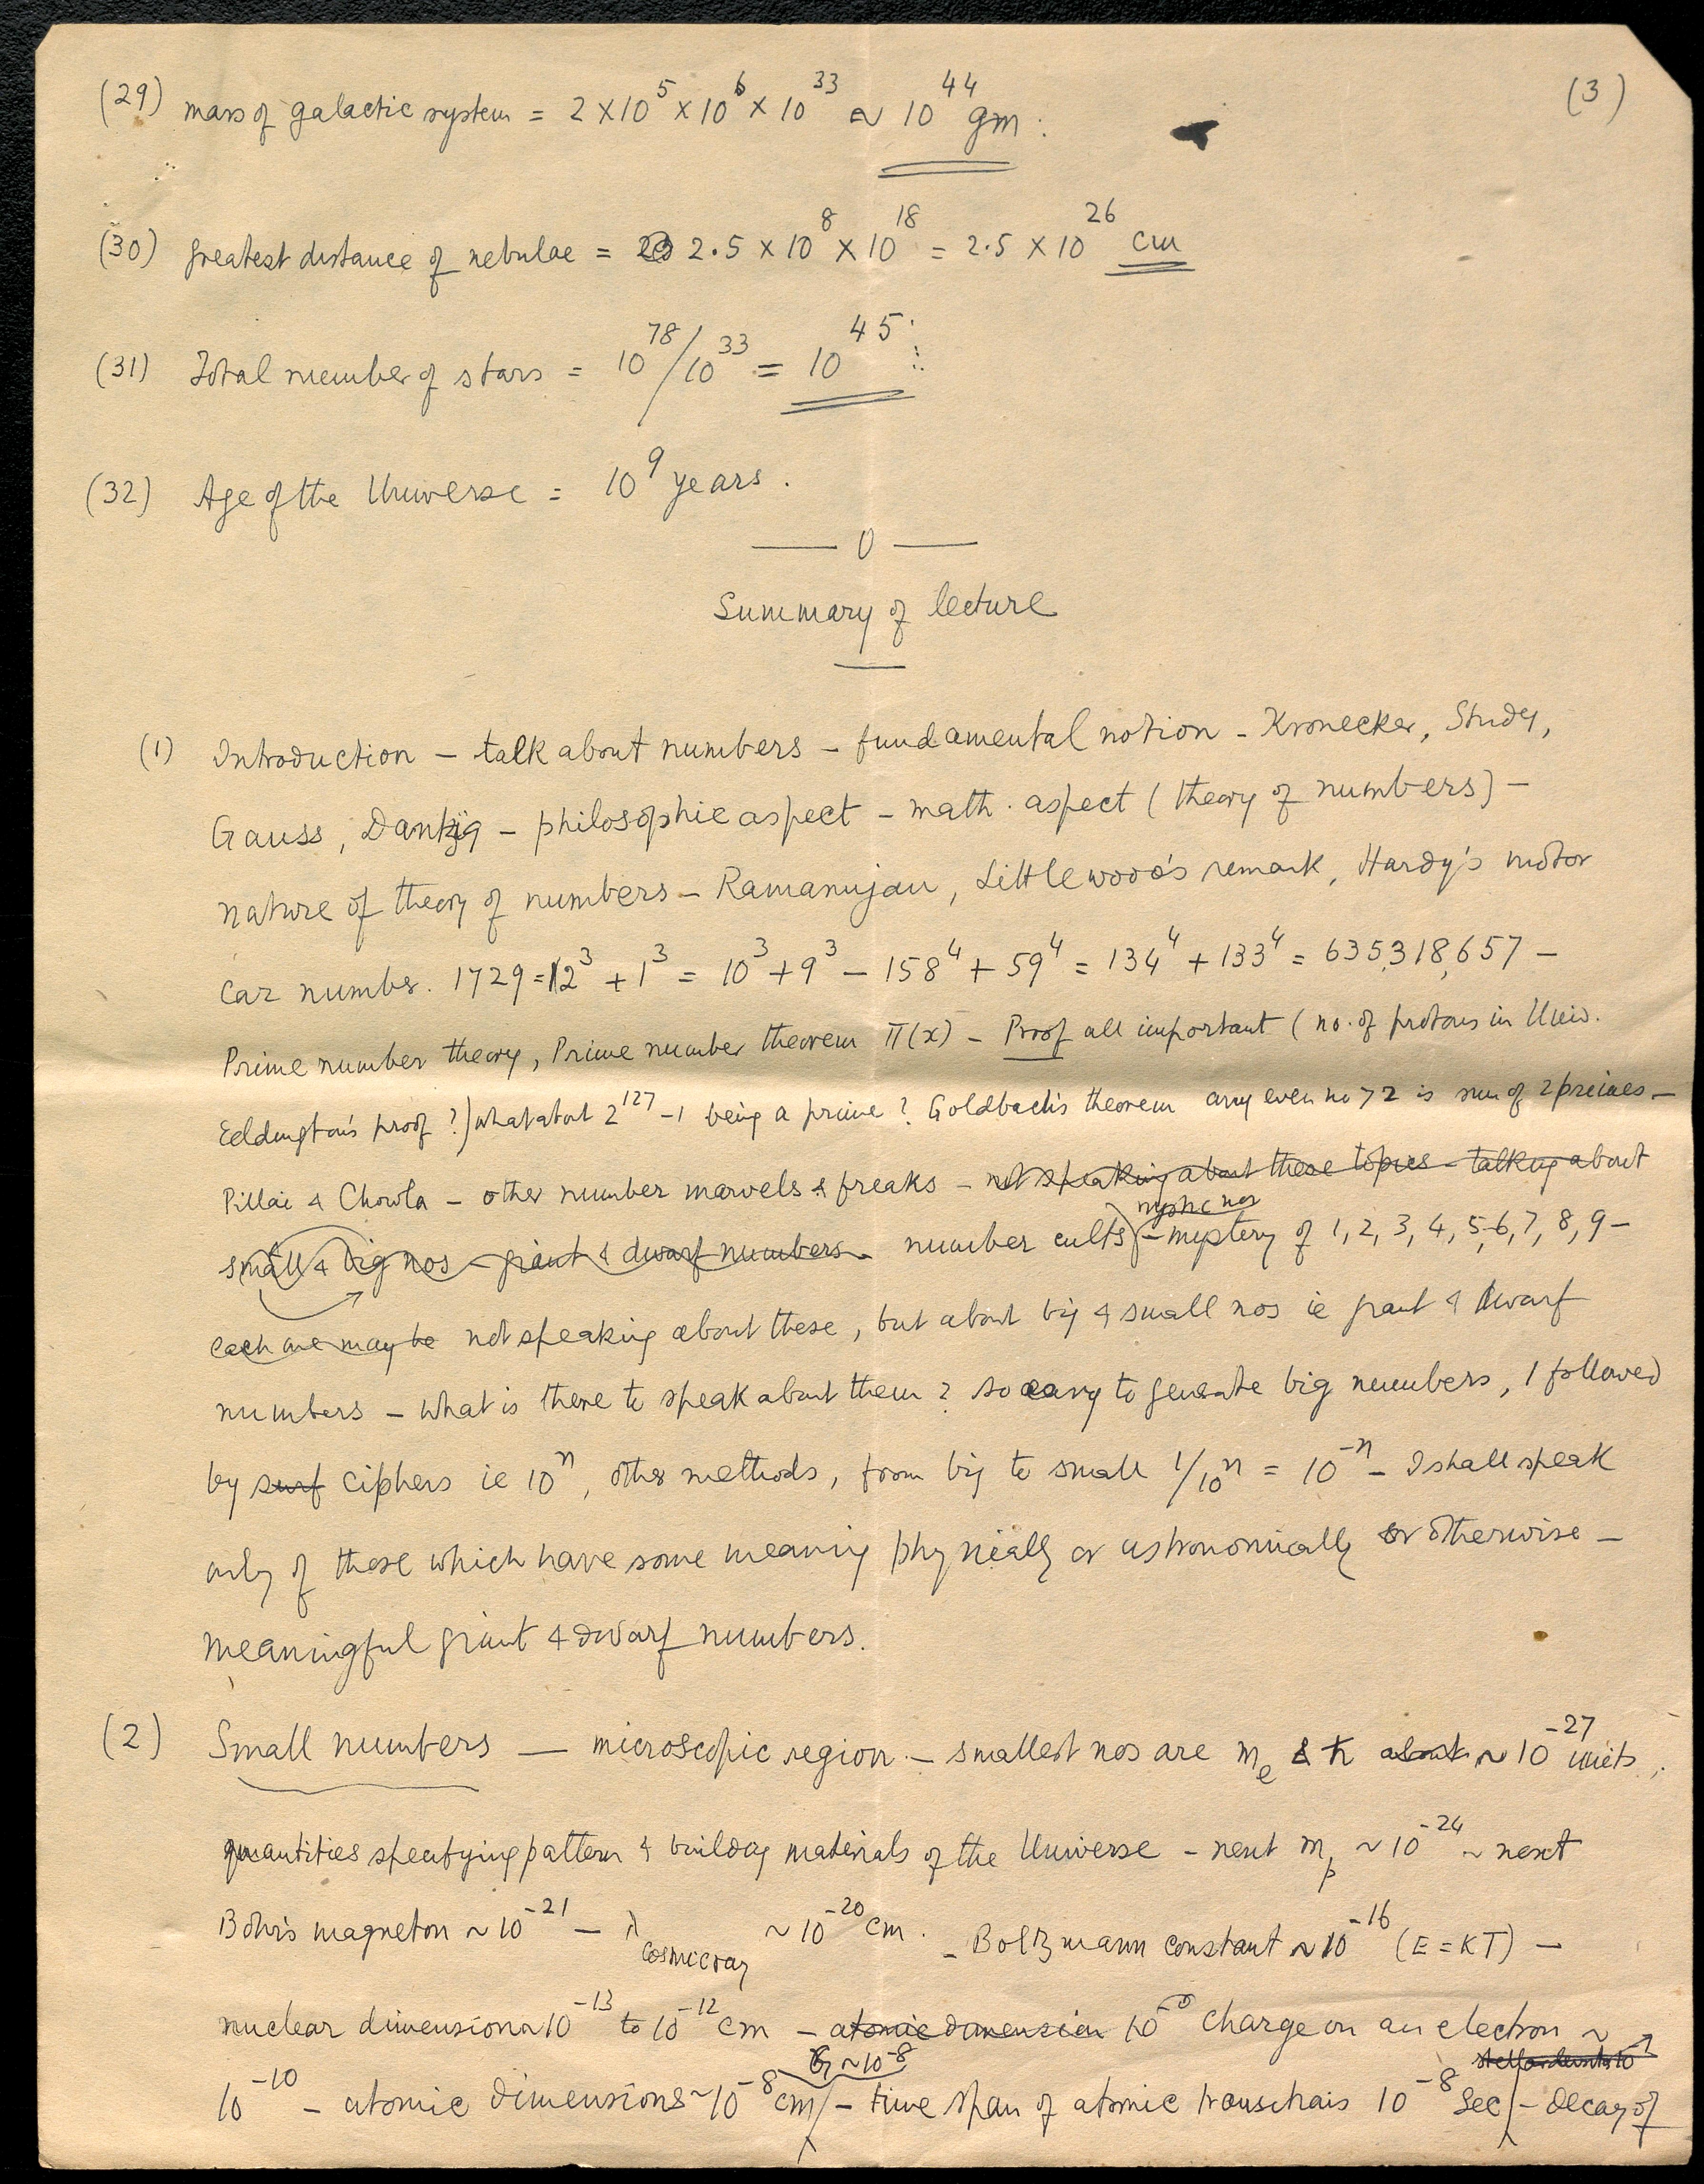 (3)
(29) mass of galactic system = 2 × 10^5 × 10^6 × 10^33 ~ 10^44 gm.
(30) greatest distance of nebulae = 2.5 × 10^8 × 10^18 = 2.5 × 10^26 cm
(31) Total number of stars = 10^78/10^33 = 10^45
(32) Age of the Universe = 10^9 years.
— 0 —
Summary of lecture
(1) Introduction – talk about numbers – fundamental notion - Kronecker, Study,
Gauss, Dantzig – philosophic aspect – math. aspect (theory of numbers) –
nature of theory of numbers – Ramanujan, Littlewood's remark, Hardy's motor
car number. 1729 = 12^3 + 1^3 = 10^3 + 9^3 – 158^4 + 59^4 = 134^4 + 133^4 = 635,318,657 –
Prime number theory, Prime number theorem π(x) – Proof all important (no. of protons in Univ.
Eddington's proof?) what about 2^127 - 1 being a prime? Goldbach's theorem any even no > 2 is sum of 2 primes –
Pillai & Chowla – other number marvels & freaks – not speaking about these topics – talking about
mystic nos
small & big nos – giant & dwarf numbers – number cults – mystery of 1, 2, 3, 4, 5, 6, 7, 8, 9 –
each one may be not speaking about these, but about big & small nos ie giant & dwarf
numbers – what is there to speak about them? so easy to generate big numbers, 1 followed
by ciphers ie 10^n, other methods, from big to small 1/10^n = 10^-n – I shall speak
only of those which have some meaning physically or astronomically or otherwise –
meaningful giant & dwarf numbers.
(2) Small numbers — microscopic region – smallest nos are m_e & ħ about ~ 10^-27 units,
quantities specifying pattern & building materials of the Universe – next m_p ~ 10^-24 ~ next
Bohr's magneton ~ 10^-21 – λ cosmic ray ~ 10^-20 cm. – Boltzmann constant ~ 10^-16 (E = KT) –
nuclear dimension ~ 10^-13 to 10^-12 cm – atomic dimension 10^-8 charge on an electron ~
G ~ 10^-8
10^-10 – atomic dimensions ~ 10^-8 cm – time span of atomic transitions 10^-8 sec – decay of